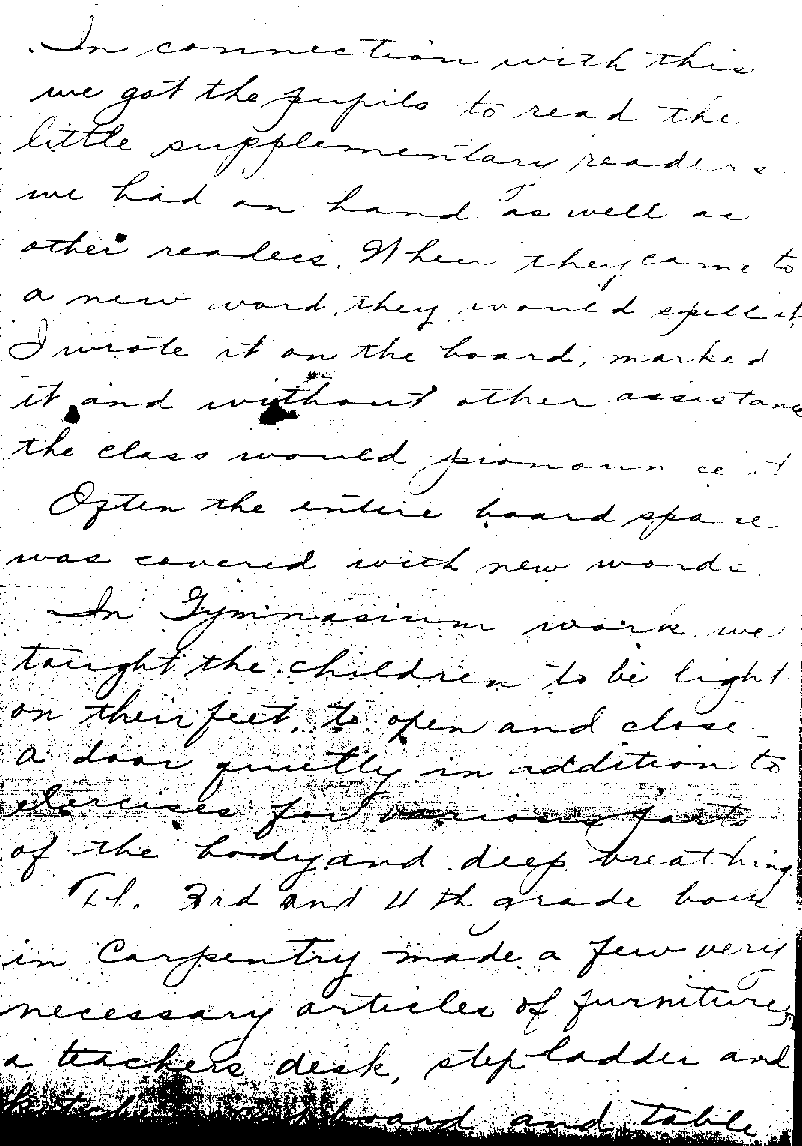 In connection with this
we got the pupils to read the
little supplementary readers
we had on hand as well as
other readers. When they came to
a new word, they would spell it
I wrote it on the board, marked
it and without other assistance
the class would pronounce it
Often the entire board space
was covered with new words
In Gymnasium work we
taught the children to be light
on their feet, to open and close
a door quietly in addition to
exercises for various parts
of the body and deep breathing
The 3rd and 4th grade boys
in Carpentry made a few very
necessary articles of furniture,
a teachers desk, step ladder and
kitchen cupboard and table